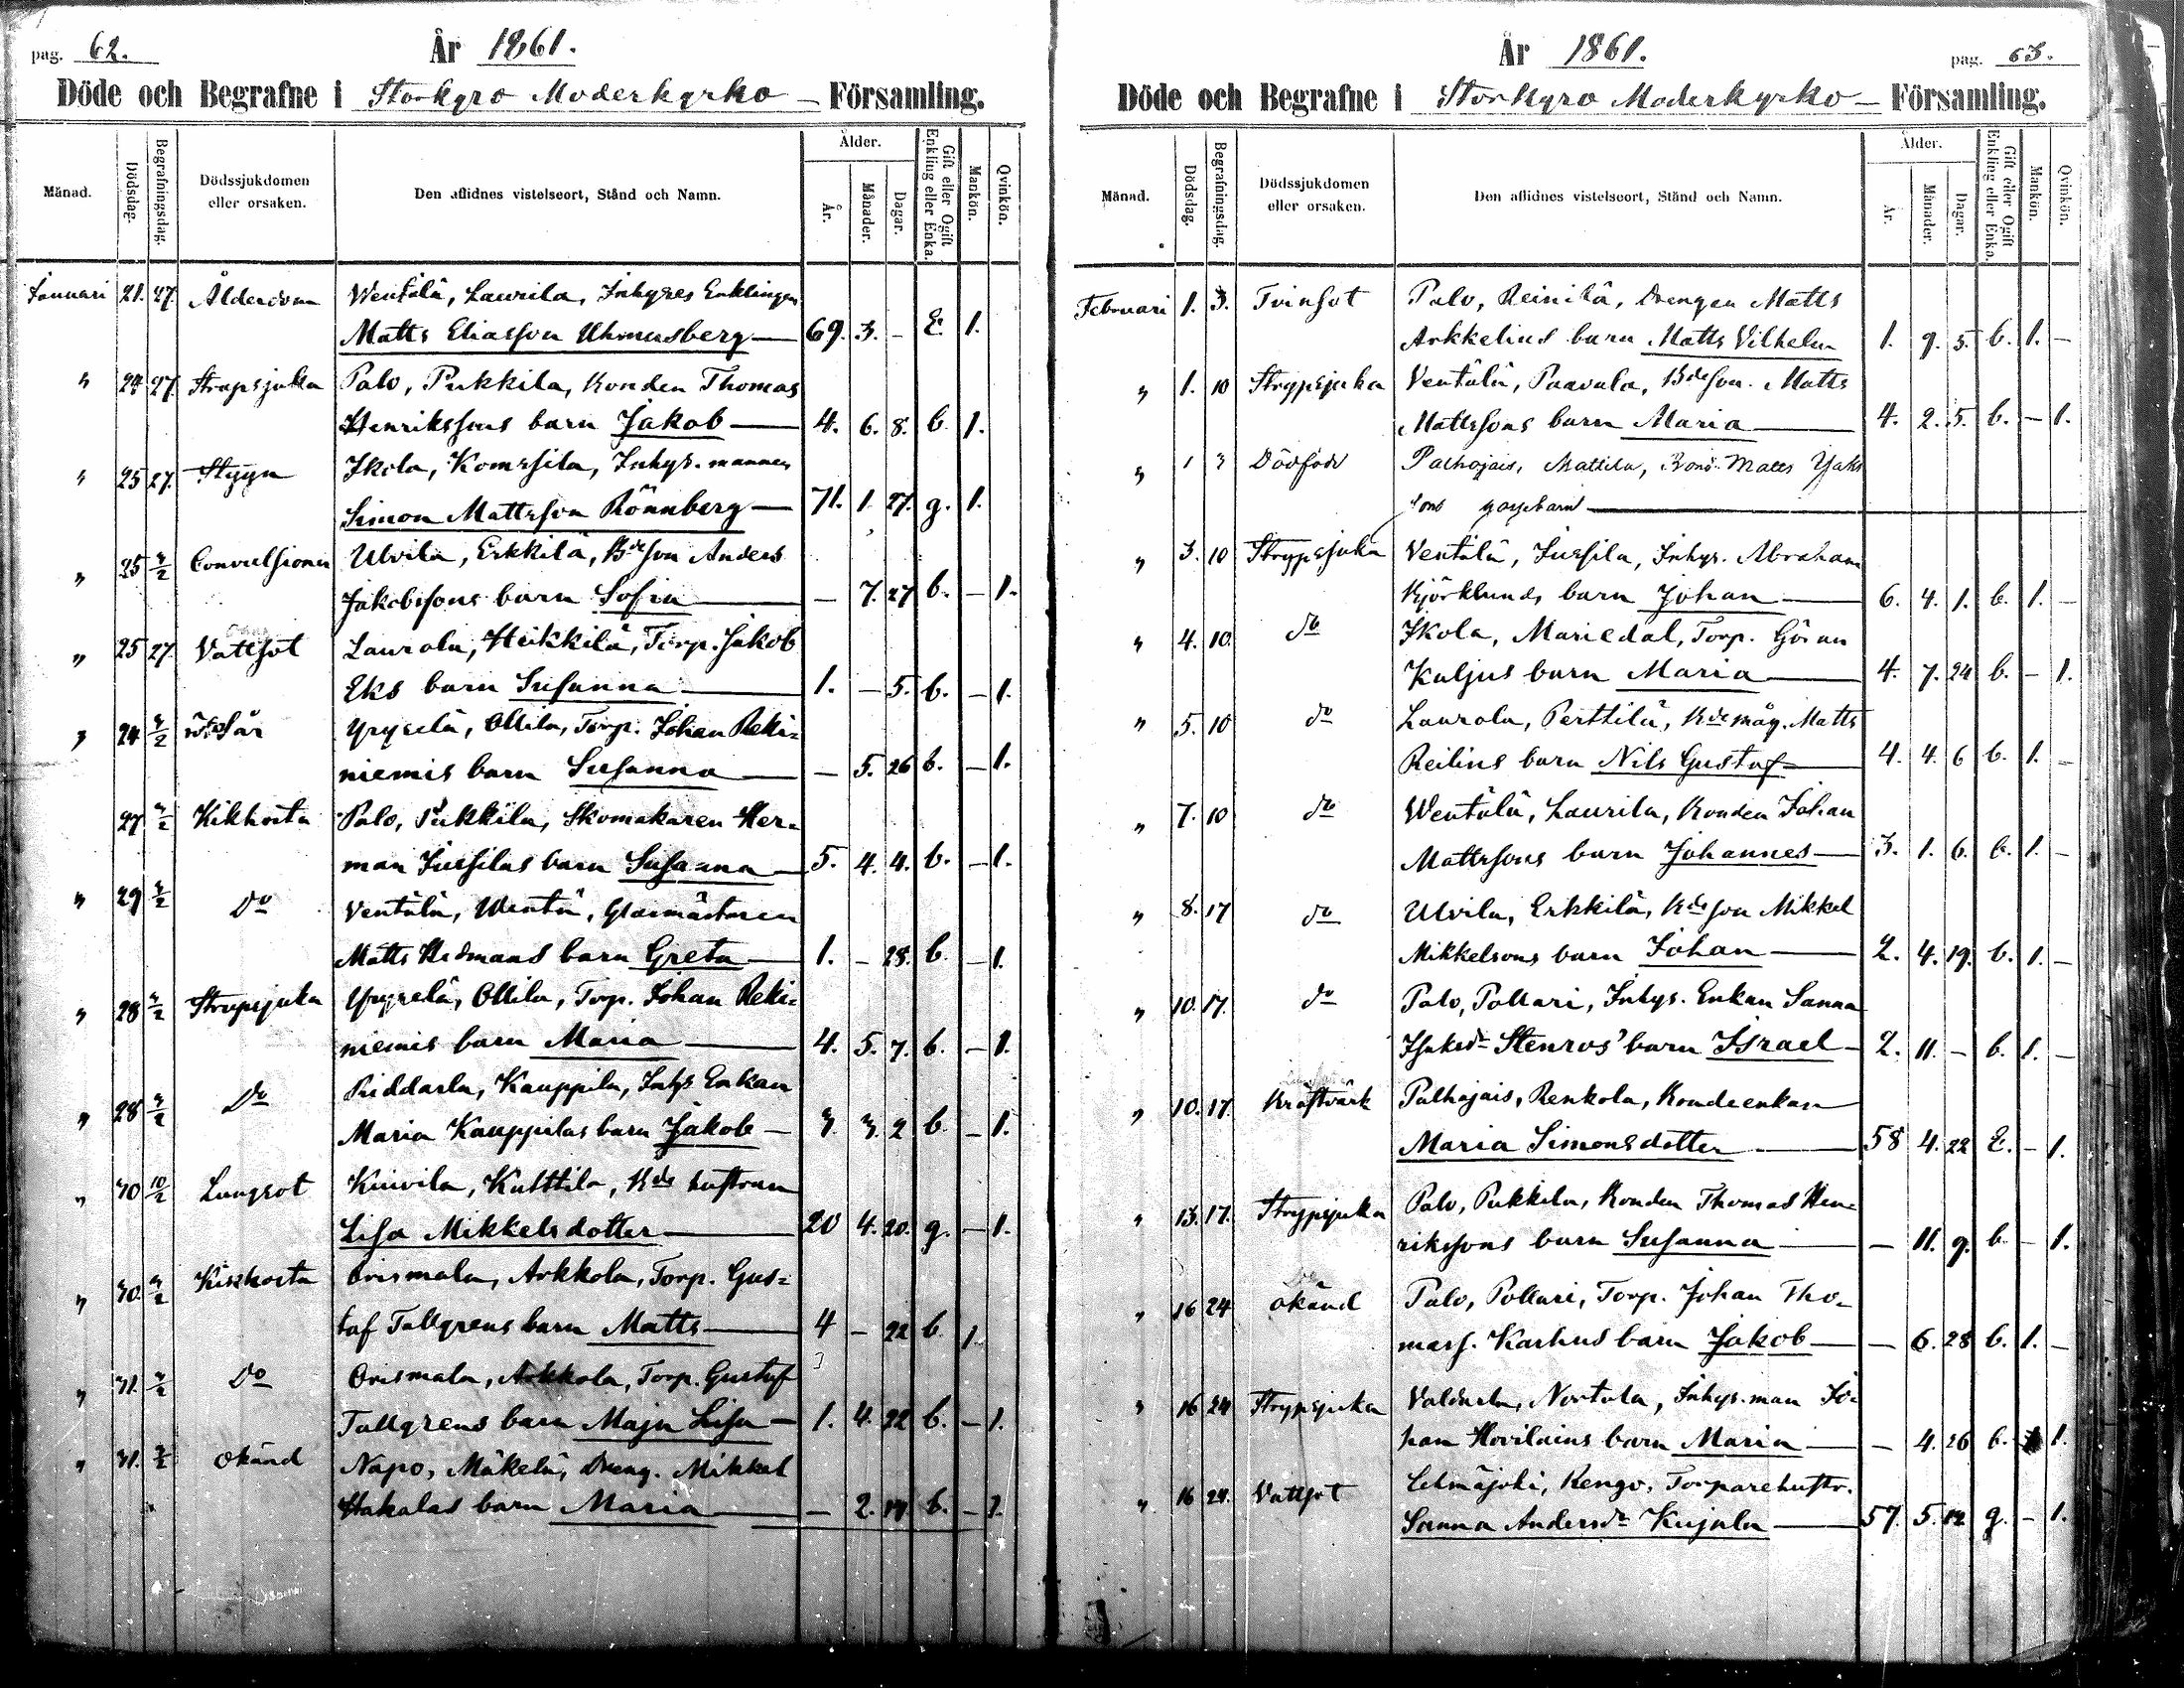 pag. 62.
År 1861.
Döde och Begrafne i Storkyro Moderkyrko Församling.
Månad. Dödsdag. Begrafningsdag. Dödssjukdomen eller orsaken. Den aflidnes vistelseort, Stånd och Namn. Ålder. År. Månader. Dagar. Gift eller Ogift Enkling eller Enka. Mankön. Qvinkön.
Januari 21. 27. Ålderdom Wentälä, Laurila, Inhyses Enklingen
Matts Eliasson Uhmusberg — 69. 3. - E. 1.
" 24 27. Strupsjuka Palo, Pukkila, Bonden Thomas
Henrikssons barn Jakob — 4. 6. 8. b. 1.
" 25 27. Styyn Ikola, Komsila, Inhys. mannen
Simon Mattsson Rönnberg — 71. 1 27. g. 1.
" 25 3/2 Convulsioner Ulvila, Erkkilä, Bdeson Anders
Jakobssons barn Sofia — — 7. 27 b. — 1.
" 25 27. Vattsot Laurola, Heikkilä, Torp. Jakob
Eks barn Susanna — 1. — 5. b. — 1.
" 24 3/2 sår Yryselä, Ollila, Torp. Johan Reki=
niemis barn Susanna — — 5. 26 b. — 1.
27 3/2 Kikhosta Palo, Pukkila, Skomakaren Her=
man Jussilas barn Susanna — 5. 4. 4. b. — 1.
" 29 3/2 Do Ventälä, Wentä, Glasmästaren
Matts Hedmans barn Greta — 1. - 28. b. — 1.
" 28 3/2 Strupsjuka Yryselä, Ollila, Torp. Johan Reki=
niemis barn Maria — 4. 5. 7. b. — 1.
" 28 3/2 Do Riddarla, Kauppila, Inhys Enkan
Maria Kauppilas barn Jakob — 3. 3. 2 b. — 1.
" 30 10/2 Lungsot Kuivila, Kulttila, Bds hustrun
Lisa Mikkelsdotter — 20 4. 20. g. — 1.
" 30. 3/2 Kikhosta Orismala, Arkkola, Torp. Gus=
taf Tallgrens barn Matts — 4 — 22 b. 1.
" 31. 3/2 Do Orismala, Arkkola, Torp. Gustaf
Tallgrens barn Maja Lisa — 1. 4. 22 b. — 1.
" 31. 3/2 okänd Napo, Mäkelä, Dreng. Mikkel
Hakalas barn Maria — — 2. 17. b. — 1.
År 1861.
pag. 63.
Döde och Begrafne i Storkyro Moderkyrko — Församling.
Månad. Dödsdag. Begrafningsdag. Dödssjukdomen eller orsaken. Den aflidnes vistelseort, Stånd och Namn. Ålder. År. Månader. Dagar. Gift eller Ogift Enkling eller Enka. Mankön. Qvinkön.
Februari 1. 3. Tvinsot Palo, Reinilä, Drengen Matts
Arkkelius barn Matts Vilhelm 1. 9. 5. b. 1. —
" 1. 10 Strypsjuka Ventälä, Paavola, Bdeson. Matts
Mattssons barn Maria — 4. 2. 5. b. — 1.
" 1 3 Dödfödt Palhojais, Mattila, Bond. Matts Jaks
sons gossebarn —
" 3. 10 Strypsjuka Ventälä, Jussila, Inhys. Abraham
Björklunds barn Johan — 6. 4. 1. b. 1. —
" 4. 10. do Ikola, Mariedal, Torp. Göran
Kuljus barn Maria — 4. 7. 24 b. — 1.
" 5. 10 do Laurola, Perttilä, Bdemåg. Matts
Reilins barn Nils Gustaf — 4. 4. 6 b. 1. —
" 7. 10 do Wentälä, Laurila, Bonden Johan
Mattssons barn Johannes — 3. 1. 6. b. 1. —
" 8. 17 do Ulvila, Erkkilä, Bdeson Mikkel
Mikkelsons barn Johan — 2. 4. 19. b. 1. —
" 10. 17. do Palo, Pollari, Inhys. Enkan Sanna
Isaksdr Stenros' barn Israel — 2. 11. — b. 1. —
" 10. 17. Kräftvärk Palhojais, Renkola, Bondeenkan
Maria Simonsdotter — 58 4. 22 E. — 1.
" 13. 17. Strypsjuka Palo, Pukkila, Bonden Thomas Hen=
rikssons barn Susanna — — 11. 9. b. — 1.
" 16 24 okänd Palo, Pollari, Torp. Johan Tho=
mass. Karhus barn Jakob — — 6. 28 b. 1. —
" 16 24 Strypsjuka Valdarla, Nortola, Inhys. man Jo=
han Hovilains barn Maria — — 4. 26 b. 1.
" 16 24. Vattsot Lehmäjoki, Rengo, Torparehustr.
Sanna Andersdr Kujala — 57. 5. 12 g. — 1.